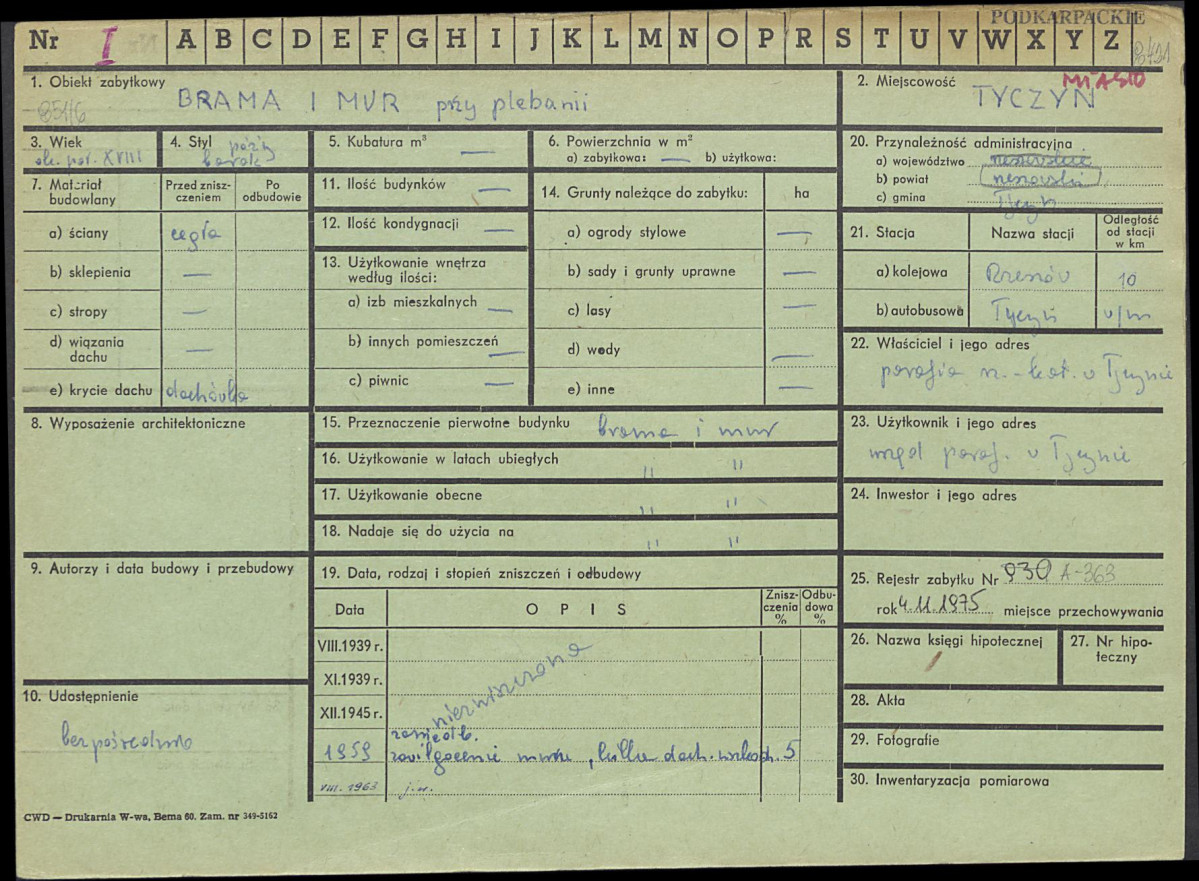 PODKARPACKIE
Nr I A B C D E F G H I J K L M N O P R S T U V W X Y Z
1. Obiekt zabytkowy
BRAMA I MUR przy plebanii
851/6
2. Miejscowość
MIASTO
TYCZYN
3. Wiek
ok. poł. XVIII
4. Styl późny
barok
5. Kubatura m³ —
6. Powierzchnia w m²
a) zabytkowa: — b) użytkowa:
7. Materiał budowlany
Przed zniszczeniem
Po odbudowie
a) ściany cegła
b) sklepienia —
c) stropy —
d) wiązania dachu —
e) krycie dachu dachówka
8. Wyposażenie architektoniczne
9. Autorzy i data budowy i przebudowy
10. Udostępnienie
bezpośrednio
11. Ilość budynków —
12. Ilość kondygnacji —
13. Użytkowanie wnętrza
według ilości:
a) izb mieszkalnych —
b) innych pomieszczeń —
c) piwnic —
14. Grunty należące do zabytku: ha
a) ogrody stylowe —
b) sady i grunty uprawne —
c) lasy —
d) wody —
e) inne —
15. Przeznaczenie pierwotne budynku brama i mur
16. Użytkowanie w latach ubiegłych " "
17. Użytkowanie obecne " "
18. Nadaje się do użycia na " "
19. Data, rodzaj i stopień zniszczeń i odbudowy
Data
OPIS
Zniszczenia %
Odbudowa %
VIII.1939 r.
XI.1939 r.
XII.1945 r.
niezniszczona
1959 zaniedb.
zawilgocenie muru, kilka dach. uszkodz. 5
VIII. 1963 j.w.
20. Przynależność administracyjna
a) województwo rzeszowskie
b) powiat rzeszowski
c) gmina Tyczyn
21. Stacja
Nazwa stacji
Odległość od stacji w km
a) kolejowa Rzeszów 10
b) autobusowa Tyczyn w/m
22. Właściciel i jego adres
parafia rz.-kat. w Tyczynie
23. Użytkownik i jego adres
urząd paraf. w Tyczynie
24. Inwestor i jego adres
25. Rejestr zabytku Nr 930 A-363
rok 4.11.1975 miejsce przechowywania
26. Nazwa księgi hipotecznej
27. Nr hipoteczny
28. Akta
29. Fotografie
30. Inwentaryzacja pomiarowa
CWD — Drukarnia W-wa, Bema 60. Zam. nr 349-5162